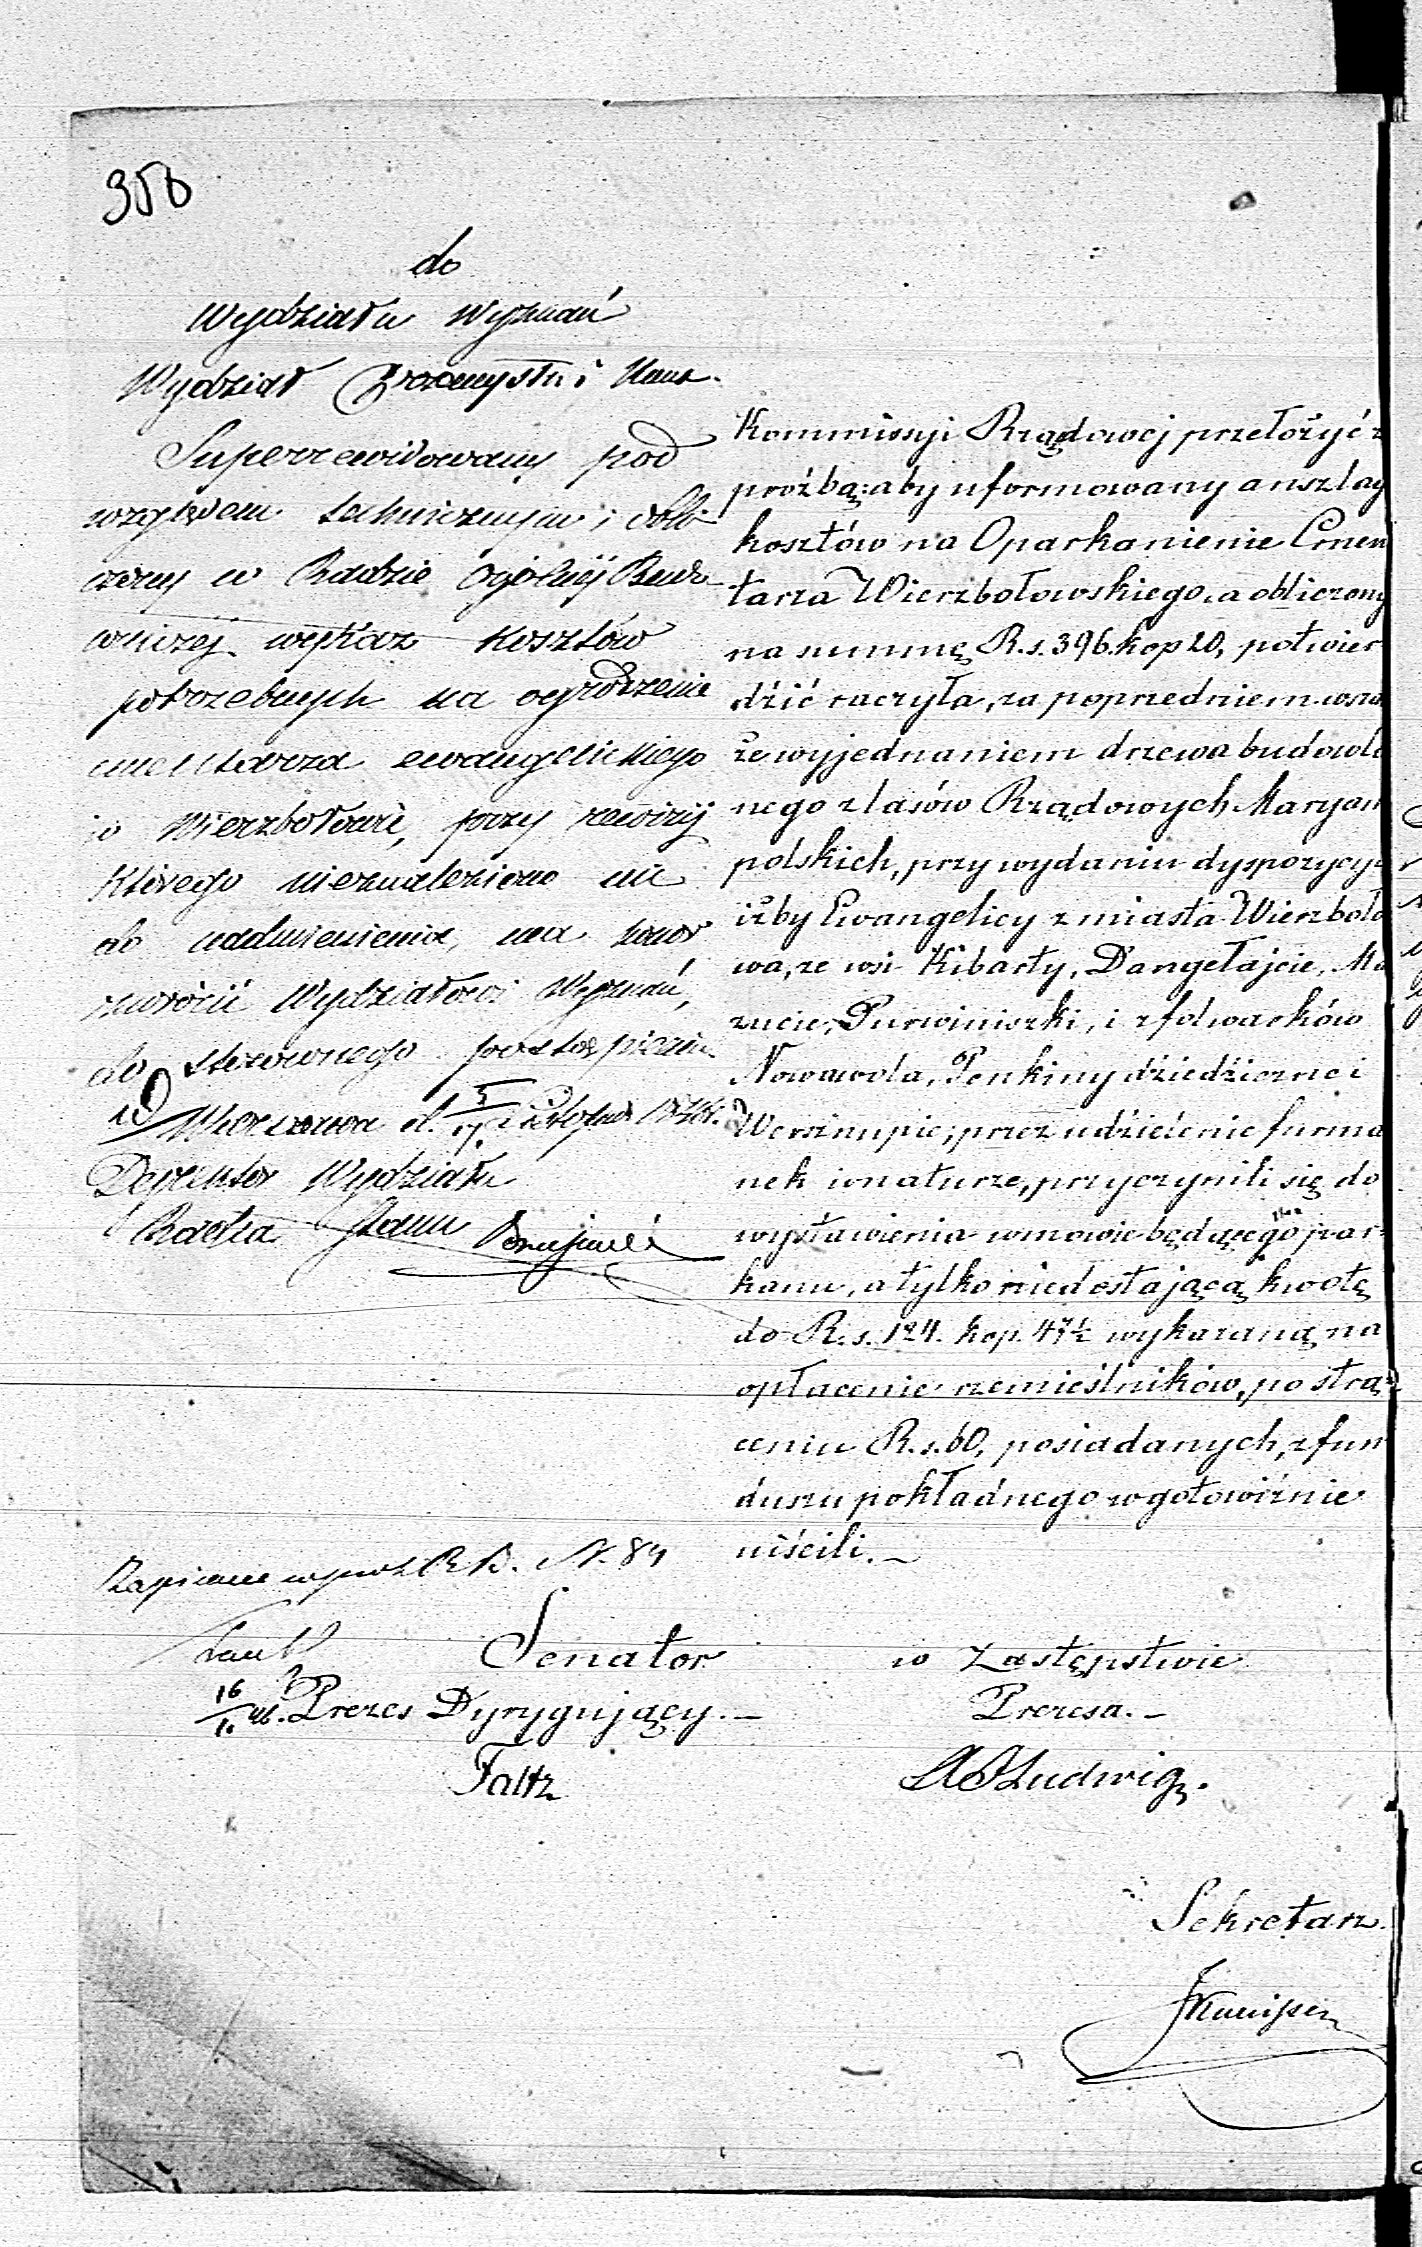 350
do
Wydziału Wyznań
Wydział Przemysłu i Kunz.
Superrewidowany pod
względem technicznym i obli
czony w Radzie Ogólnej Budo
wniczej wykaz kosztów
potrzebnych na ogrodzenie
cmentarza ewangelickiego
w Wierzbołowie, przy rewizij
którego nieznaleziono nic
do nadmienienia, ma honor
zwrócić Wydziałowi Wyznań,
do stosownego postąpienia
Warszawa d. 5/17 Listopada 1846 r.
Dyrektor Wydziału
Radca Stanu
Kommissyi Rządowej przełożyć z
proźbą: aby uformowany anszlag
kosztów na Oparkanienie Cmen
tarza Wierzbołowskiego, a obliczony
na summę R.s. 396. kop 20, potwier
dzić raczyła, za poprzedniem wsza
że wyjednaniem drzewa budowla
nego z lasów Rządowych Maryam
polskich, przy wydaniu dyspozycyi
iżby Ewangelicy z miasta Wierzboło
wa, ze wsi Kibarty, Dangełajcie, Ma
zucie, Purwiniszki, i z folwarków
Nowawola, Penkiny dziedziczne i
Werszupie, przez udzielenie furma
nek w naturze, przyczynili się do
wystawienia w mowie będącego par
kanu, a tylko niedostającą kwotę
do R.s. 124. kop. 47½ wykazaną na
opłacenie rzemieślników, po strą
ceniu R.s. 60, posiadanych, z fun
duszu pokładnego w gotowiźnie
uiścili.
N. 84
Senator
Prezes Dyrygujący.
Faltz
w Zastępstwie
Prezesa.
Ludwig.
16/11 46.
Sekretarz